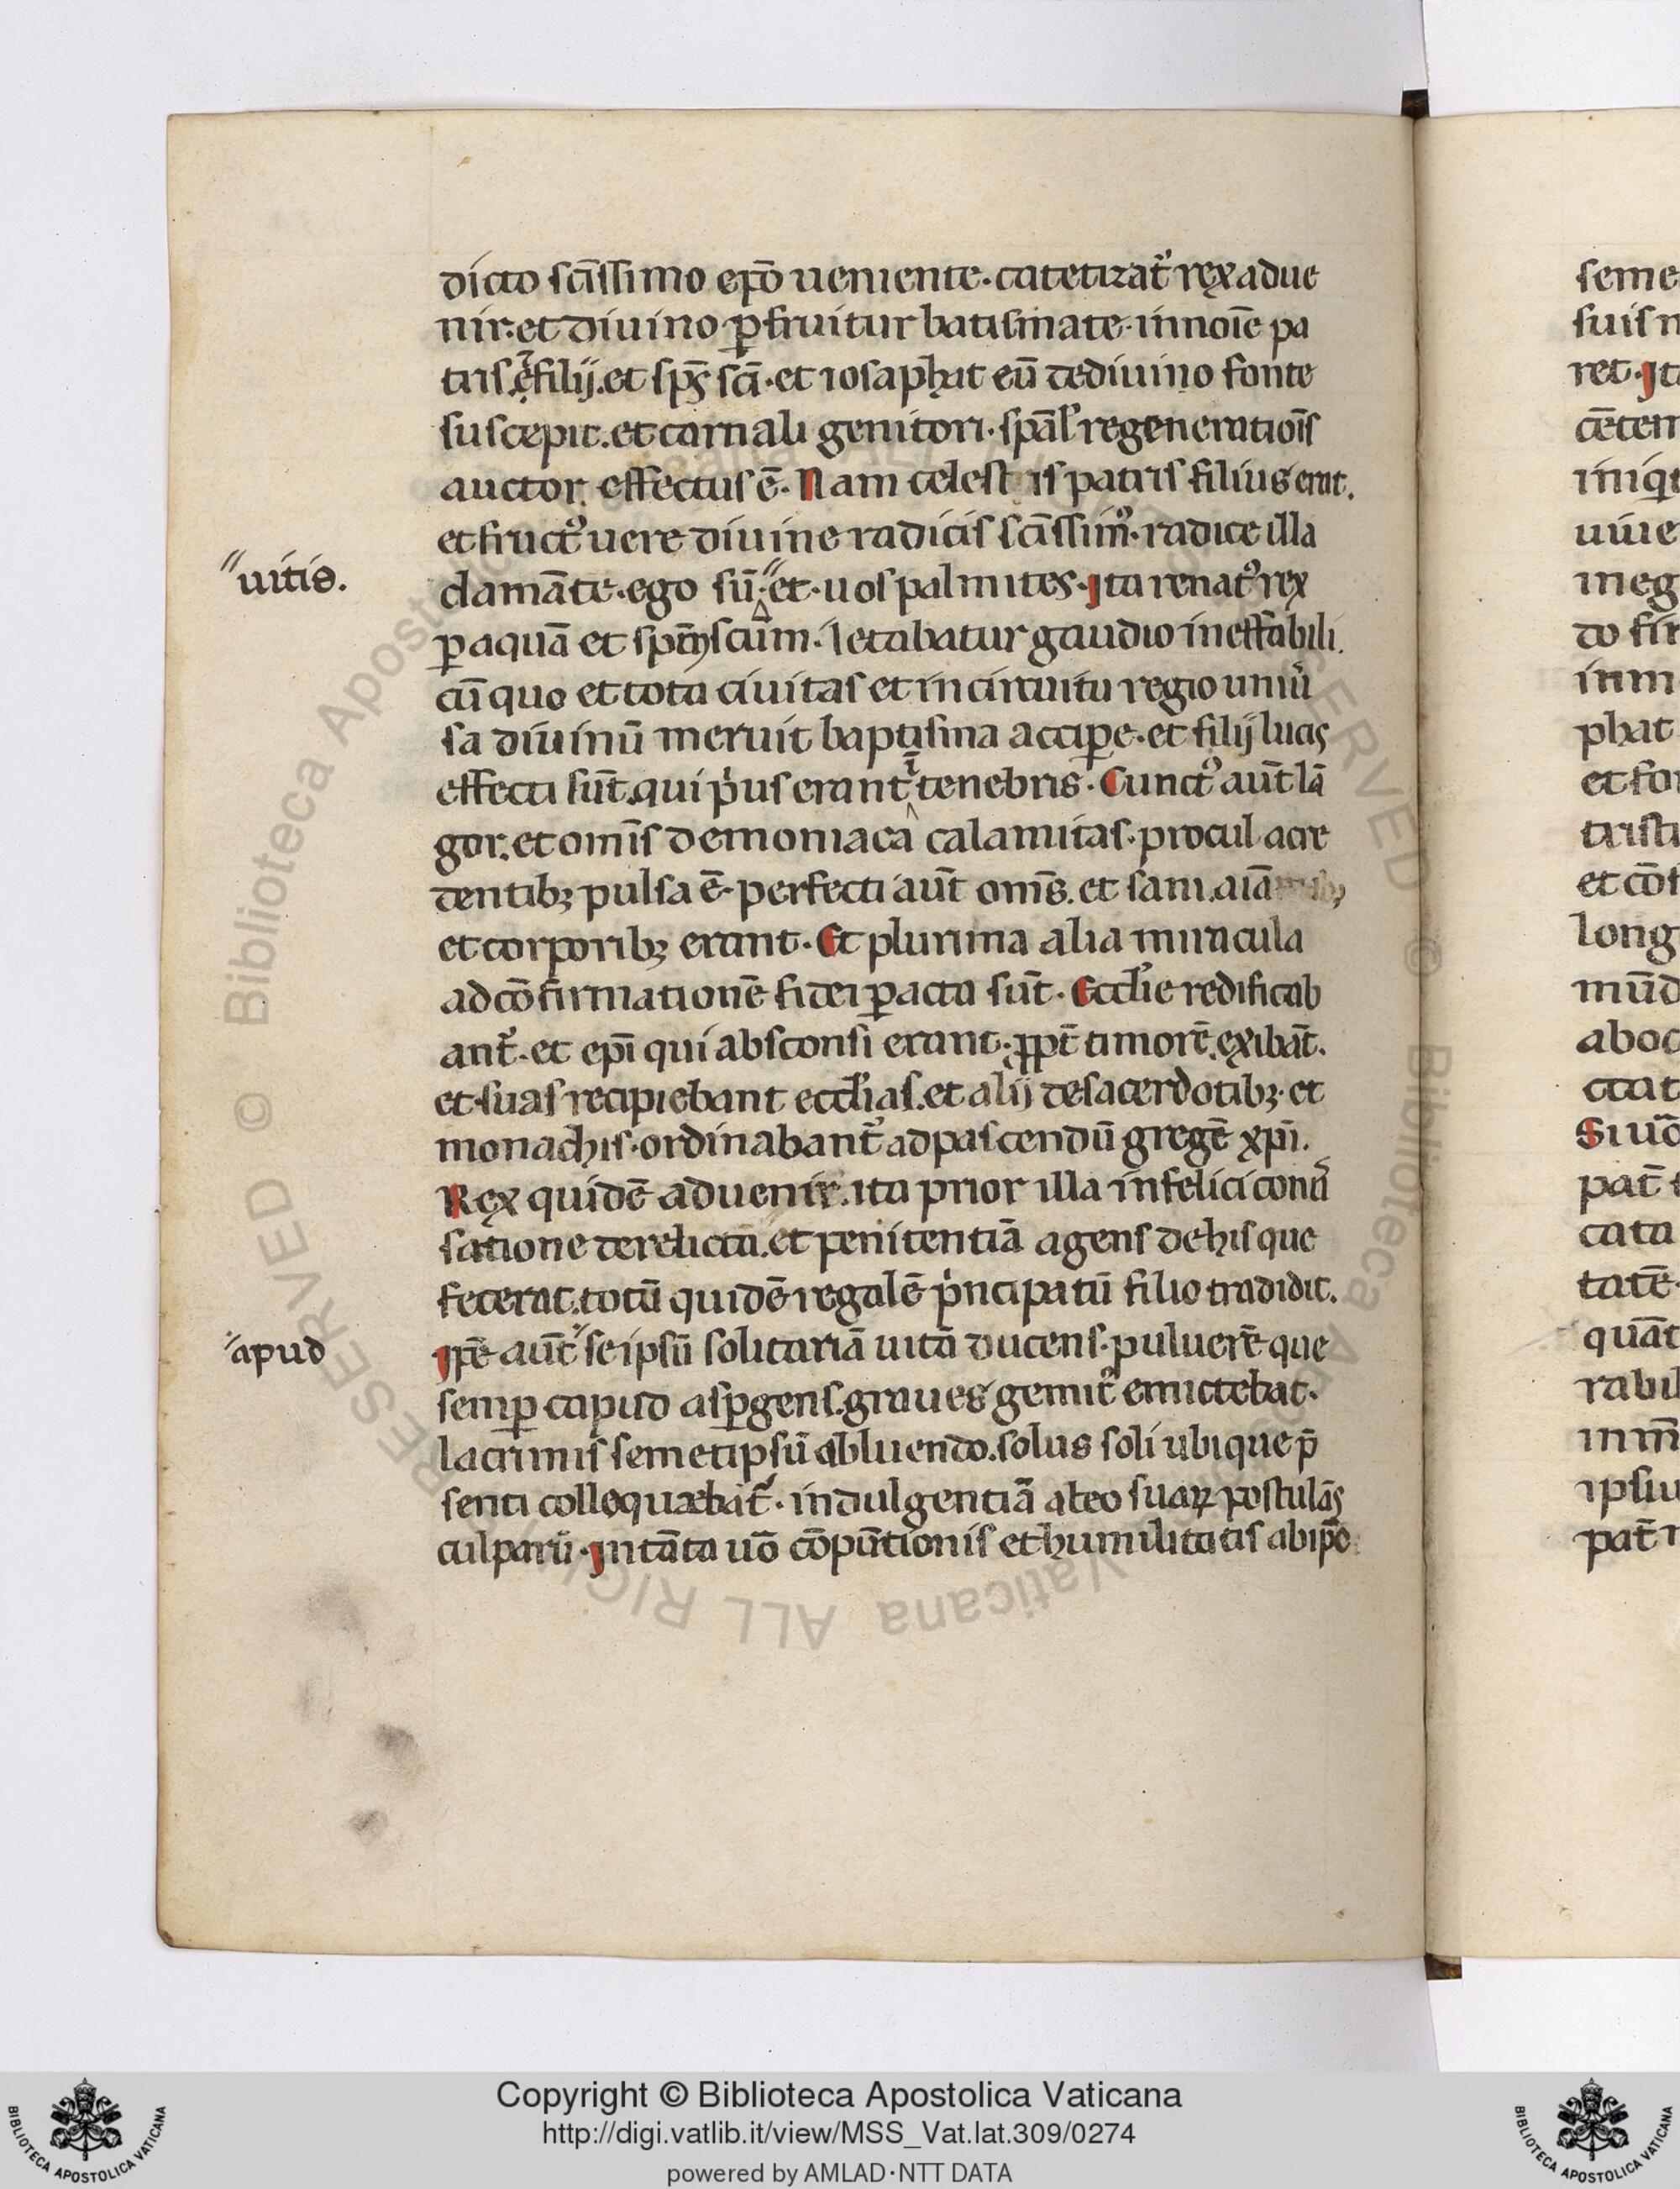 dicto scīssimo ep̄o ueniente. catetizat᷑ rex adue
nir. et diuino ꝑfruitur batismate. in noīe pa
tris. et filij. et sp̄s sc̄i. et iosaphat eū de diuino fonte
suscepit. et carnali genitori. sp̄al' regeneratiōis
auctor. effectus ē. Nam celestis patris filius erat.
et fructꝰ uere diuine radicis sc̄issimꝰ. radice illa
clamāte. ego sū. et. uos palmites. Ita renatꝰ rex
uitis.
ꝑ aquā et sp̄m sc̄um. letabatur gaudio ineffabili.
cū quo et tota ciuitas et in circuitu regio uniu͛
sa diuinū meruit baptisma accipe. et filij lucis
effecti sūt. qui p͛us erant ī tenebris. Cunctꝰ aūt lā
gor. et omīs demoniaca calamitas. procul a cre
dentibꝫ pulsa ē. perfecti aūt om̄s. et sani. aīa
et corporibꝫ erant. Et plurima alia miracula
ad cōfirmationē fidei ꝑacta sūt. Eccl'ie redificab
ant᷑. et ep̄i qui absconsi erant. ꝓpt̄ timorē. exibāt.
et suas recipiebant eccl'ias. et alij de sacerdotibꝫ. et
monachis. ordinabant᷑ ad pascendū gregē xp̄i.
Rex quidē aduenir. ita prior illa infelici conu͛
satione derelicta. et penitentiā agens de his que
fecerat. totū quidē regalē p͛ncipatū filio tradidit.
Ip̄e aūt se ipsū solitariā uitā ducens. puluerē que
apud
semꝑ capud asꝑgens. graues gemitꝰ emictebat.
lacrimis semetipsū abluendo. solus soli ubique p̄
senti colloquebat᷑. indulgentiā a deo suaꝝ postulās
culparū. In tāta uō cōpūtionis et humilitatis ab ip̄o
seme
suis n
ret. It
cētem
iniqi
uiue
in eg
do fir
inm
phat
et for
tristi
et cōf
long
mūd
aboc
ctat
Si uō
pat̄
cata
tatē
quāt
rabil
in m̄
ipsiu
pat̄
Copyright © Biblioteca Apostolica Vaticana
http://digi.vatlib.it/view/MSS_Vat.lat.309/0274
powered by AMLAD·NTT DATA
BIBLIOTECA APOSTOLICA VATICANA
BIBLIOTECA APOSTOLICA VATICANA